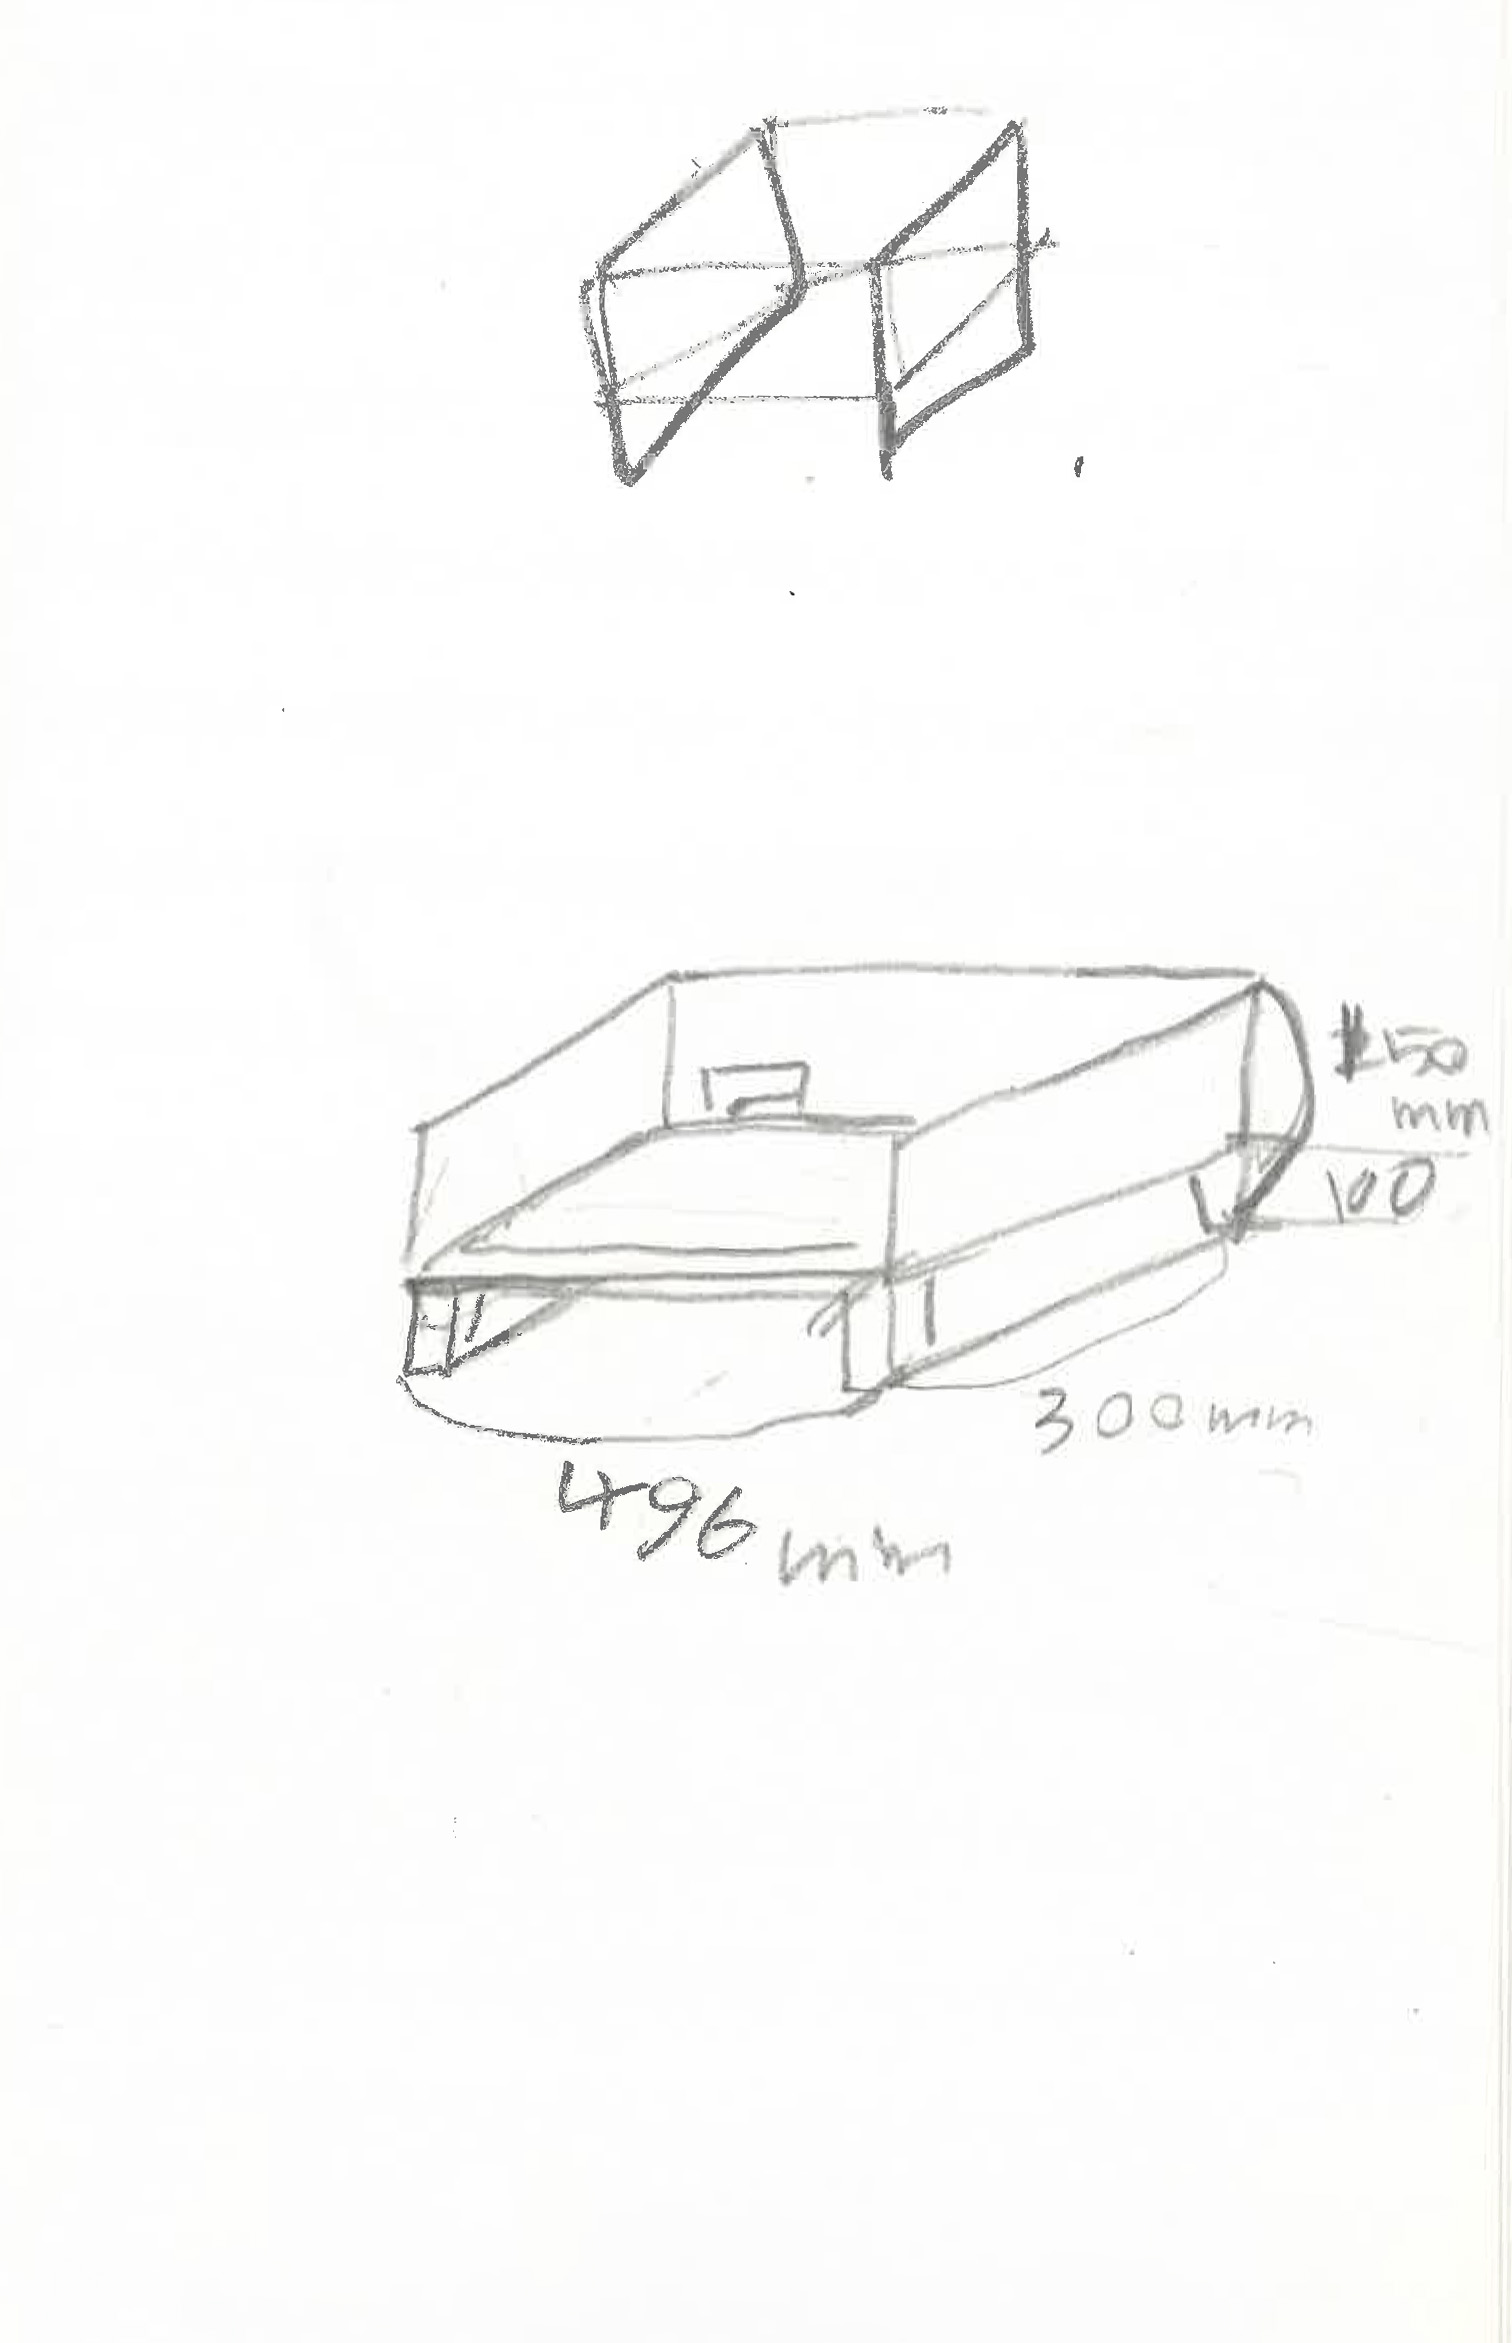 150
mm
100
300mm
496 mm